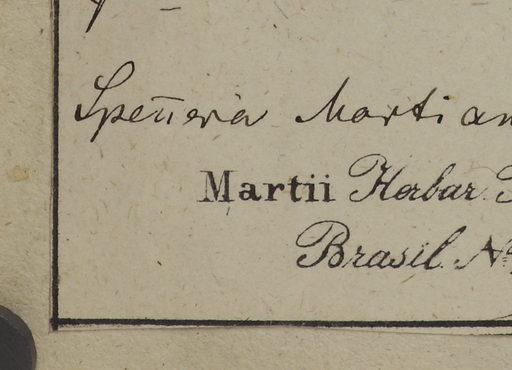 Spennera Martian
Martii Herbar.
Brasil. No